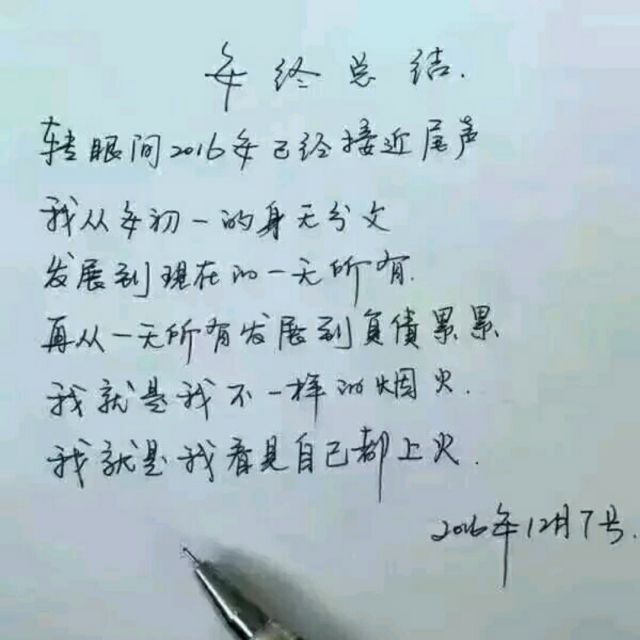 年终总结.
转眼间2016年已经接近尾声
我从年初一的身无分文
发展到现在的一无所有.
再从一无所有发展到负债累累
我就是我不一样的烟火.
我就是我看见自己都上火.
2016年12月7号.